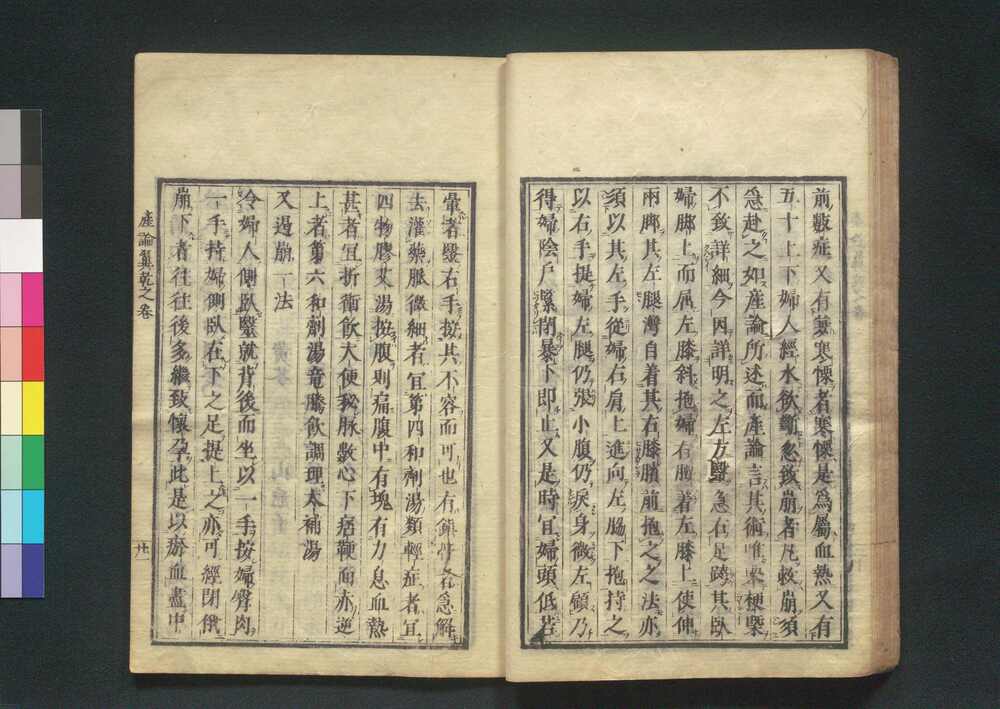 前數症又有兼寒慄者寒慄是爲屬血熱又有
五十上下婦人經水欲斷忽致崩者凡救崩須
急赴之如産論所述而産論言其術唯梗槩
不致詳細今因詳明之左方毉急右足跨其臥
婦脚上而屈左膝斜拖婦右臂着左膝上使伸
兩脚其左腿灣自着其右膝臏前抱之之法亦
須以其左手從婦右肩上進向左膓下抱持之
以右手提婦左腿仍張小腹仍捩身微左顧乃
得婦陰戶緊閉暴下即止又是時宜婦頭低若
暈者毉右手按其不容而可也有鎖牙者急解
去灌藥脈微細者宜第四和劑湯類輕症者宜
四物膠艾湯按腹則痛腹中有塊有力息血熱
甚者宜折衝飲大便秘脉數心下痞鞕而亦逆
上者第六和劑湯竜騰飲調理大補湯
又遏崩一法
令婦人側臥毉就背後而坐以一手按婦臀肉
一手持婦側臥在下之足提上之亦可經閉俄
崩下者往往後多繼致懷孕此是以瘀血盡中
産論翼乾之卷
廿一